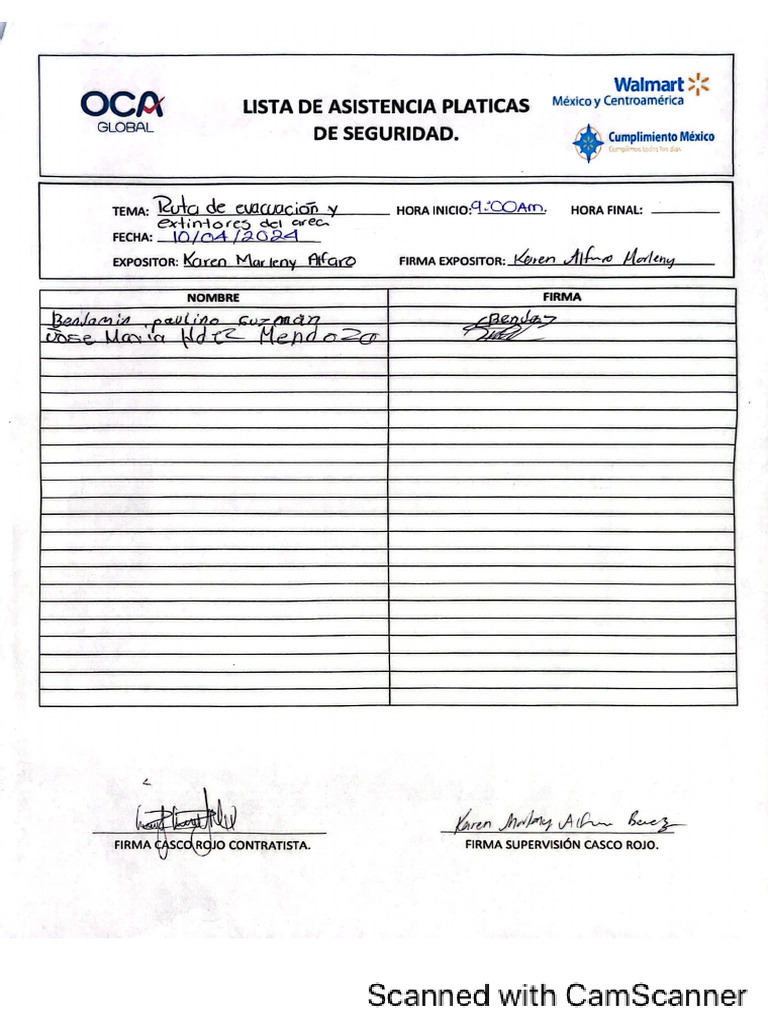 OCA
GLOBAL
LISTA DE ASISTENCIA PLATICAS
DE SEGURIDAD.
Walmart
México y Centroamérica
Cumplimiento México
Cumplimos todos los días
TEMA: Ruta de evacuación y
extintores del area
HORA INICIO: 9:00Am.
HORA FINAL:
FECHA: 10/04/2024
EXPOSITOR: Karen Marleny Alfaro
FIRMA EXPOSITOR: Karen Alfaro Marleny
NOMBRE
FIRMA
Benjamin paulino Guzmán
Jose Maria Hdez Mendoza
Karen Marleny Alfaro
FIRMA CASCO ROJO CONTRATISTA.
FIRMA SUPERVISIÓN CASCO ROJO.
Scanned with CamScanner